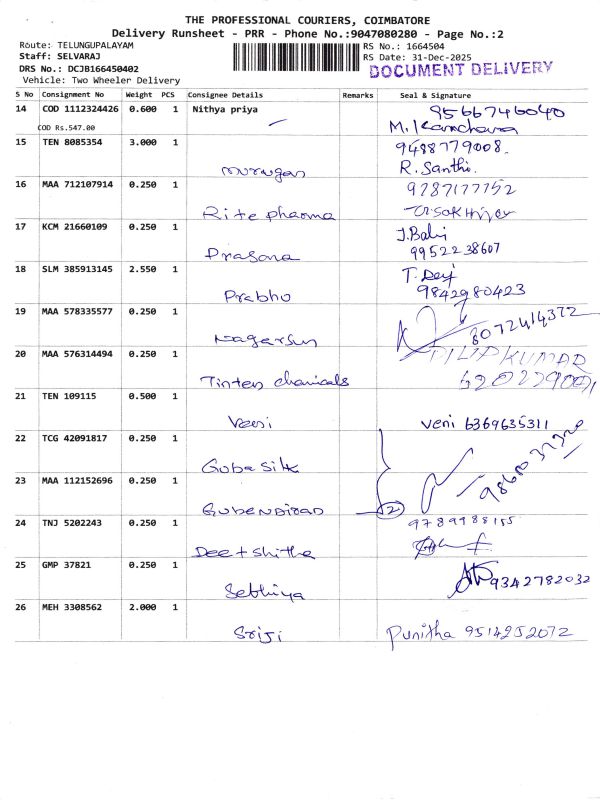 THE PROFESSIONAL COURIERS, COIMBATORE
Delivery Runsheet - PRR - Phone No.:9047080280 - Page No.:2
Route: TELUNGUPALAYAM RS No.: 1664504
Staff: SELVARAJ RS Date: 31-Dec-2025
DRS No.: DCJB166450402 DOCUMENT DELIVERY
Vehicle: Two Wheeler Delivery
S No Consignment No Weight PCS Consignee Details Remarks Seal & Signature
14 COD 1112324426 0.600 1 Nithya priya 9566746040
COD Rs.547.00 M.
15 TEN 8085354 3.000 1 9488779008.
Murugan R. Santhi.
16 MAA 712107914 0.250 1 9787177752
Rite pharma
17 KCM 21660109 0.250 1 J. Balaji
Prasana 9952238607
18 SLM 385913145 2.550 1 T. Devi
Prabhu 9842980423
19 MAA 578335577 0.250 1 8072414372
20 MAA 576314494 0.250 1 DILIP KUMAR
Tinten chemicals
21 TEN 109115 0.500 1
Veni Veni 6369635311
22 TCG 42091817 0.250 1
Guba Silk
23 MAA 112152696 0.250 1
2
24 TNJ 5202243 0.250 1 9789988155
Deetshitha
25 GMP 37821 0.250 1 9342782032
Sebhiya
26 MEH 3308562 2.000 1
Sriji Punitha 9514252072